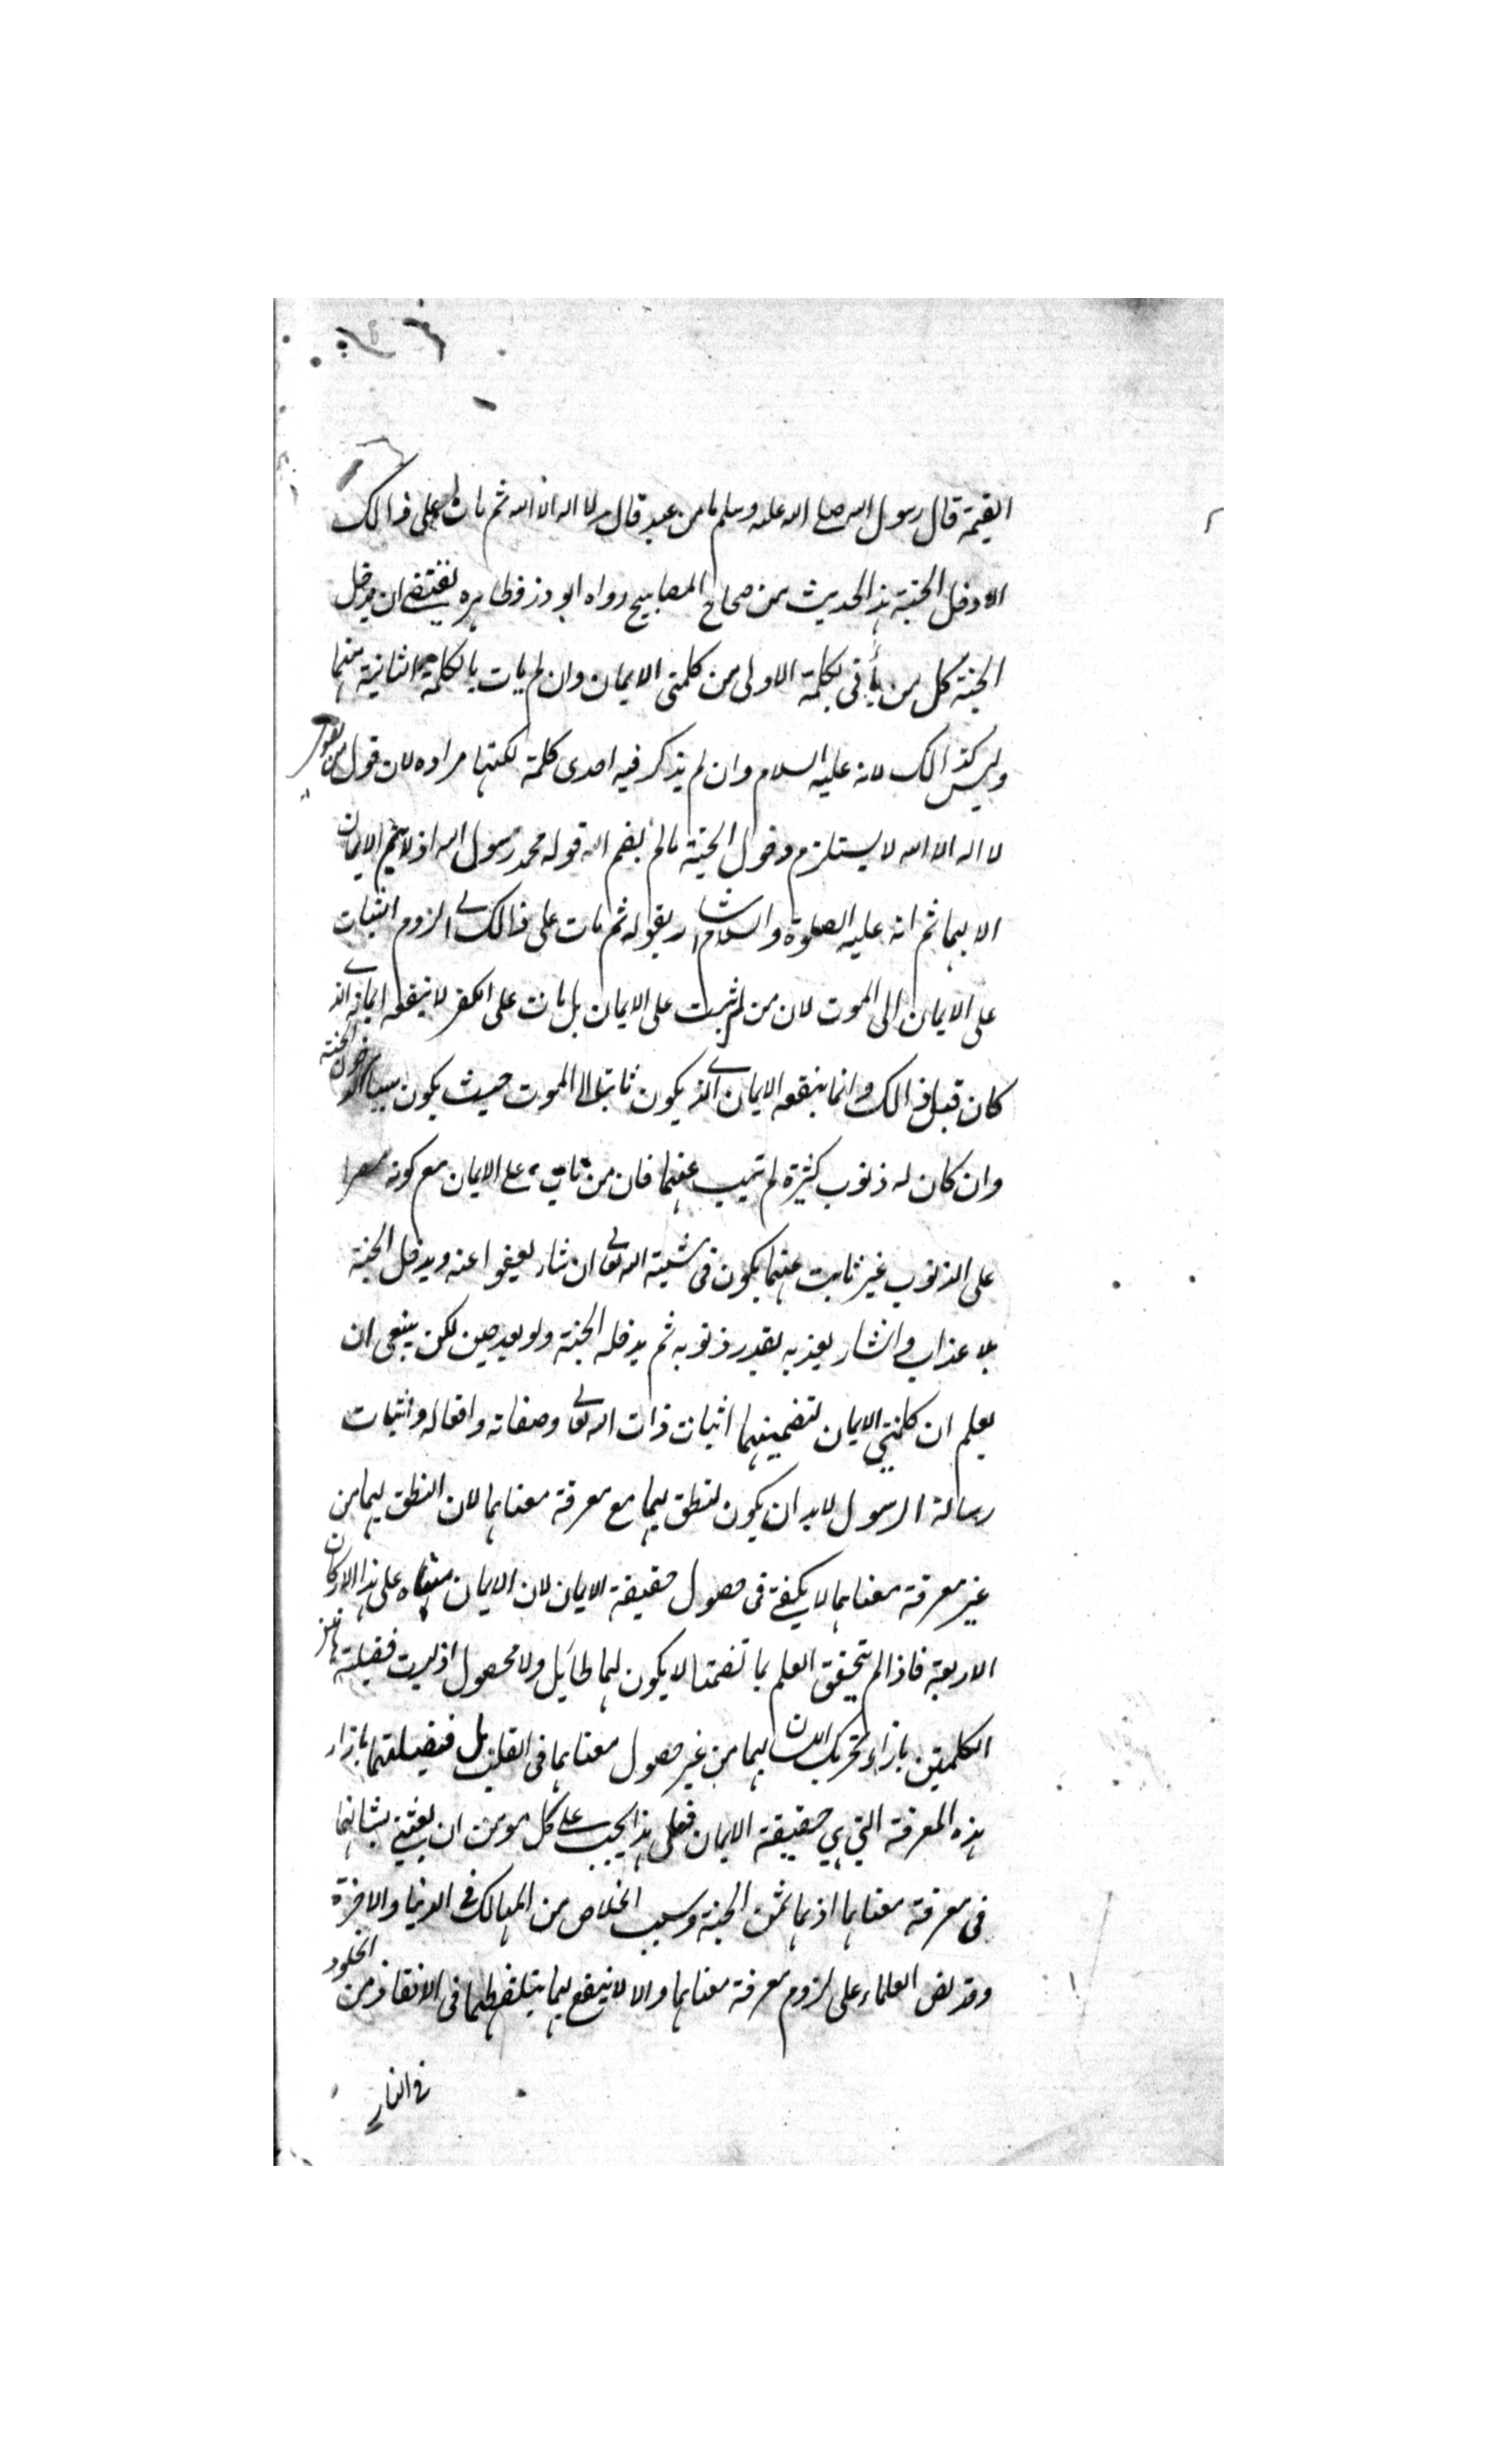 القيمة قال رسول الله صلى الله عليه وسلم ما من عبد قال لا اله الا الله ثم مات على ذالك
الا دخل الجنة هذا الحديث من صحاح المصابيح رواه ابو ذر فظاهره يقتضى ان يدخل
الجنة كل من يأتى بكلمة الاولى من كلمتى الايمان وان لم يات بالكلمة الثانية منهما
وليس كذالك لانه عليه السلام وان لم يذكر فيه احدى كلمة لكنها مراده لان قول من يقول
لا اله الا الله لا يستلزم دخول الجنة ما لم يضم اله قوله محمد رسول الله اذ لا يتم الايمان
الا بهما ثم انه عليه الصلوة والسلام اشار بقوله ثم مات على ذالك الى لزوم اثبات
على الايمان الى الموت لان من لم يثبت على الايمان بل مات على الكفر لا ينفعه ايمانه الذى
كان قبل ذالك وانما ينفعه الايمان الذى يكون ثابتا الى الموت حيث يكون سببا لدخول الجنة
وان كان له ذنوب كثيرة لم تيب عنهما فان من مات على الايمان مع كونه مصرا
على الذنوب غير تايب عنهما يكون فى مشية الله تعالى ان شاء يعفوا عنه ويدخل الجنة
بلا عذاب وانشاء يعذبه بقدر ذنوبه ثم يدخله الجنة ولو بعد حين لكن ينبغى ان
يعلم ان كلمتى الايمان لتضمينهما اثبات ذات الله تعالى وصفاته وافعاله واثبات
رسالة الرسول لابد ان يكون لنطق بهما مع معرفة معناهما لان النطق بهما من
غير معرفة معناهما لا يكفى فى حصول حقيقة الايمان لان الايمان مبناه على هذا الاركان
الاربعة فاذا لم يتحقق العلم بما تضمنا لا يكون لهما طايل ولا محصول اذ ليست فضيلة هاتين
الكلمتين بازاء تحريك اللسان بهما من غير حصول معناهما فى القلب بل فضيلتهما بازاء
هذه المعرفة التى هى حقيقة الايمان فعلى هذا يجب على كل مومن ان يعتنى بشانهما
فى معرفة معناهما اذ هما ثمن الجنة وسبب الخلاص من المهالك فى الدنيا والاخرة
وقد نص العلماء على لزوم معرفة معناهما والا لا ينفع بهما يتلفظهما فى الانقاذ من الخلود
فى النار